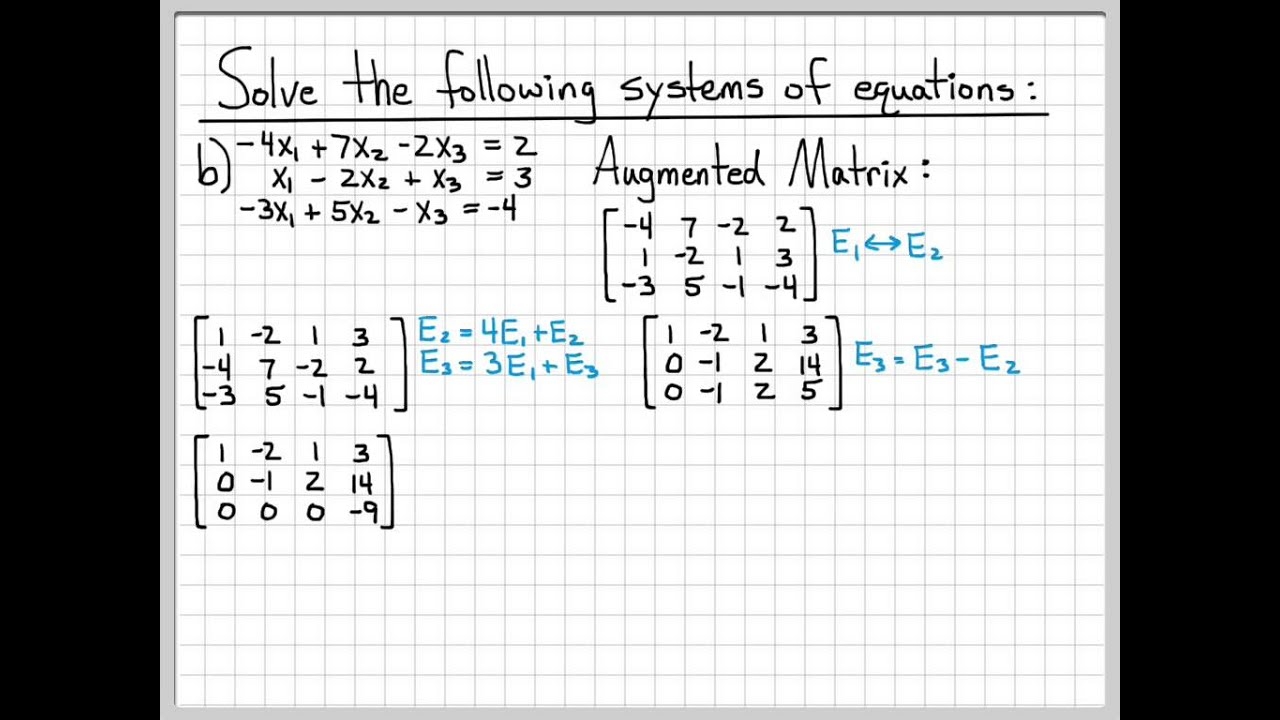 Solve the following systems of equations:
b) -4x₁ + 7x₂ - 2x₃ = 2
x₁ - 2x₂ + x₃ = 3
-3x₁ + 5x₂ - x₃ = -4
Augmented Matrix:
-4 7 -2 2
1 -2 1 3
-3 5 -1 -4
E₁ ↔ E₂
1 -2 1 3
-4 7 -2 2
-3 5 -1 -4
E₂ = 4E₁ + E₂
E₃ = 3E₁ + E₃
1 -2 1 3
0 -1 2 14
0 -1 2 5
E₃ = E₃ - E₂
1 -2 1 3
0 -1 2 14
0 0 0 -9